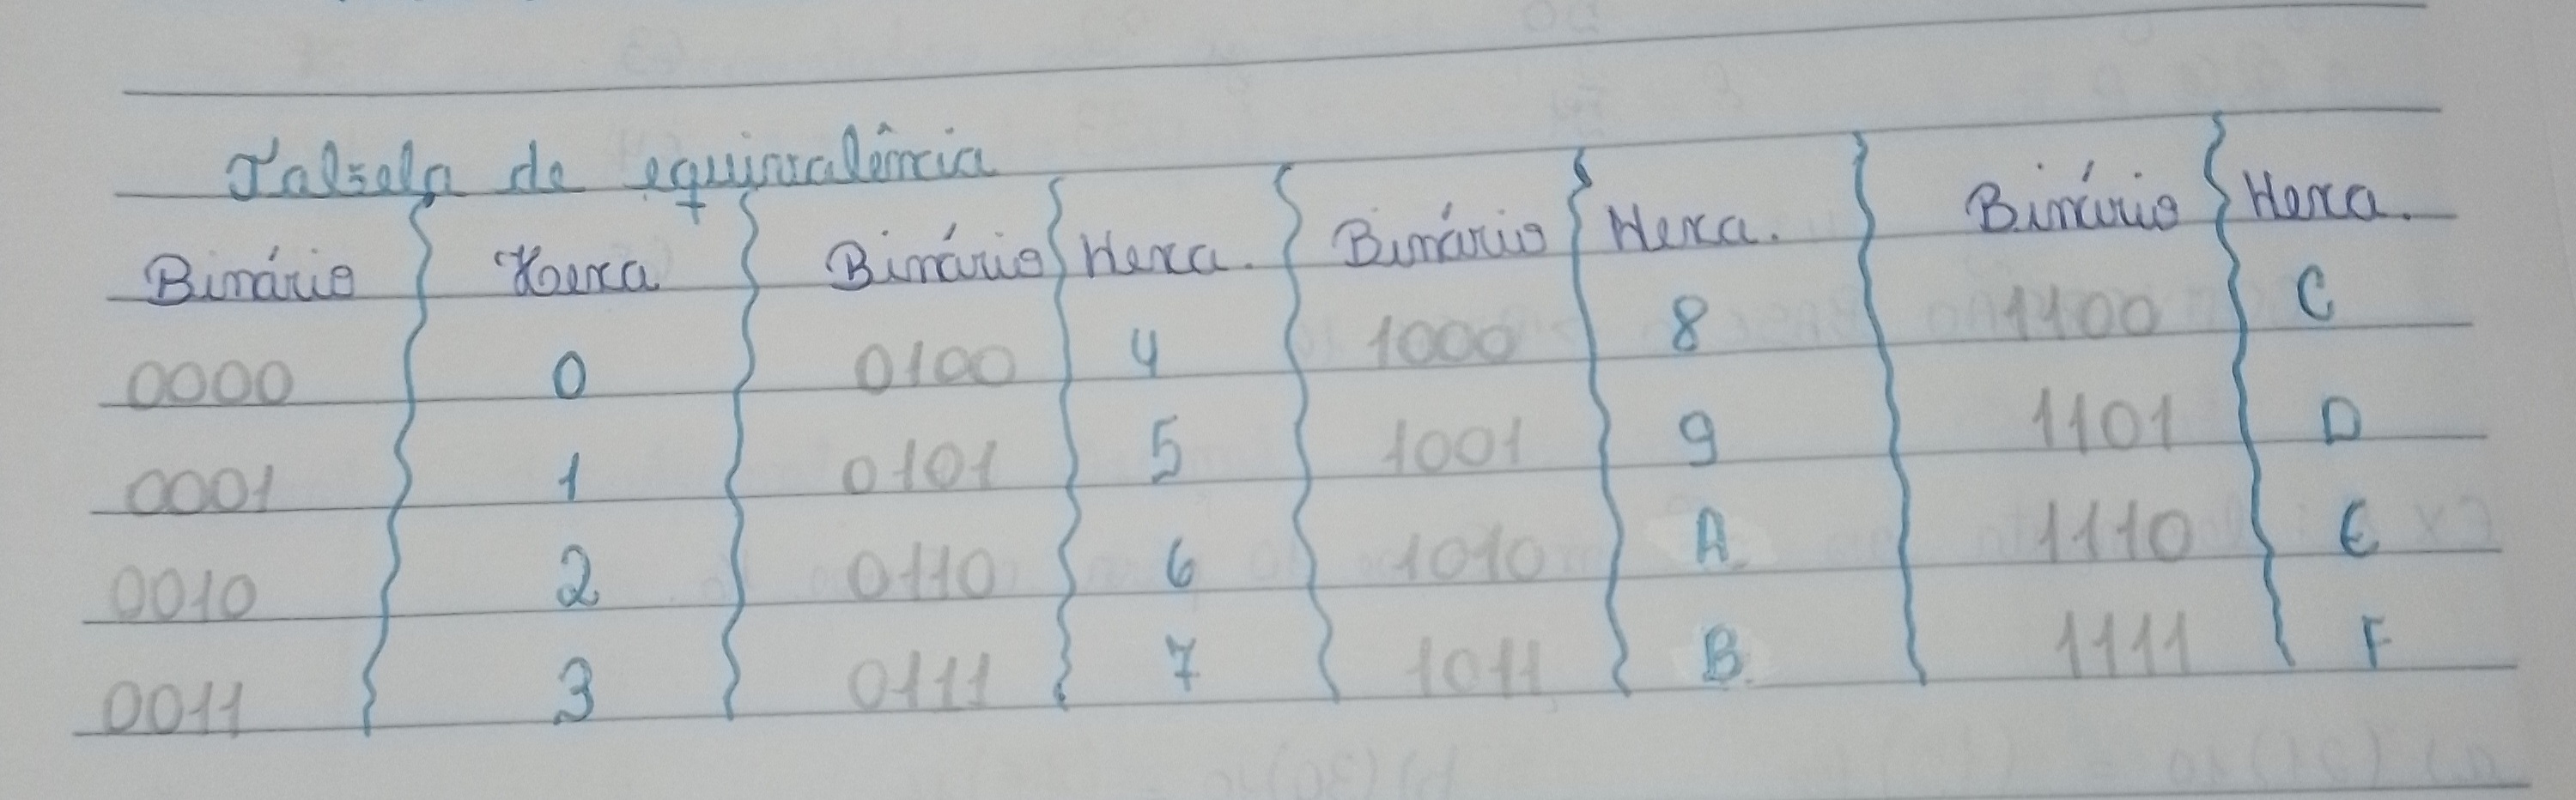 Tabela de equivalência
Binário Hexa Binário Hexa. Binário Hexa. Binário Hexa.
0000 0 0100 4 1000 8 1100 C
0001 1 0101 5 1001 9 1101 D
0010 2 0110 6 1010 A 1110 E
0011 3 0111 7 1011 B 1111 F